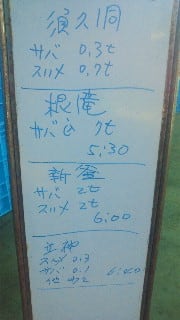 須久洞
サバ 0.3t
スルメ 0.7t
根滝
サバ込 7t
5:30
新釜
サバ 2t
スルメ 2t
6:00
立神
スルメ 0.3
サバ 0.1 6:00
他 0.2